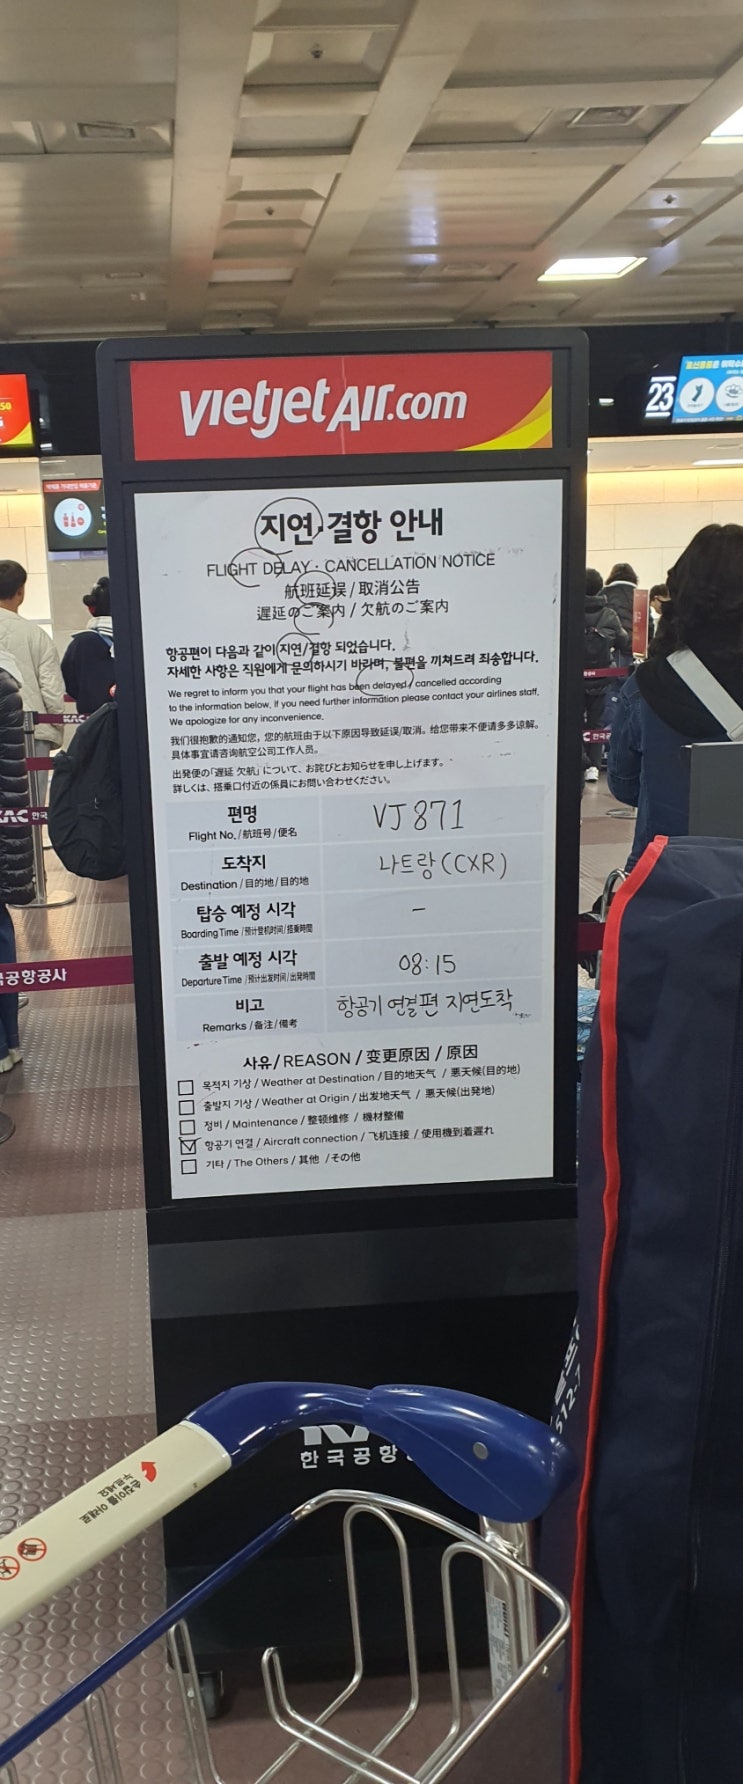 vietjet Air.com
23
50
지연·결항 안내
FLIGHT DELAY · CANCELLATION NOTICE
航班延误 / 取消公告
遅延のご案内 / 欠航のご案内
항공편이 다음과 같이 지연/결항 되었습니다.
자세한 사항은 직원에게 문의하시기 바라며, 불편을 끼쳐드려 죄송합니다.
We regret to inform you that your flight has been delayed / cancelled according
to the information below, if you need further information please contact your airlines staff.
We apologize for any inconvenience.
我们很抱歉的通知您，您的航班由于以下原因导致延误/取消。给您带来不便请多多谅解。
具体事宜请咨询航空公司工作人员。
出発便の「遅延 欠航」について、お詫びとお知らせを申し上げます。
詳しくは、搭乗口付近の係員にお問い合わせください。
편명
Flight No. / 航班号 / 便名
VJ 871
도착지
Destination / 目的地 / 目的地
나트랑 (CXR)
탑승 예정 시각
Boarding Time / 预计登机时间 / 搭乗時間
–
출발 예정 시각
Departure Time / 预计出发时间 / 出発時間
08:15
비고
Remarks / 备注 / 備考
항공기 연결편 지연도착
사유 / REASON / 变更原因 / 原因
목적지 기상 / Weather at Destination / 目的地天气 / 悪天候(目的地)
출발지 기상 / Weather at Origin / 出发地天气 / 悪天候(出発地)
정비 / Maintenance / 整顿维修 / 機材整備
항공기 연결 / Aircraft connection / 飞机连接 / 使用機到着遅れ
기타 / The Others / 其他 / その他
KAC
KAC 한국
국공항공사
한국공항
손잡이를 아래로
누르세요